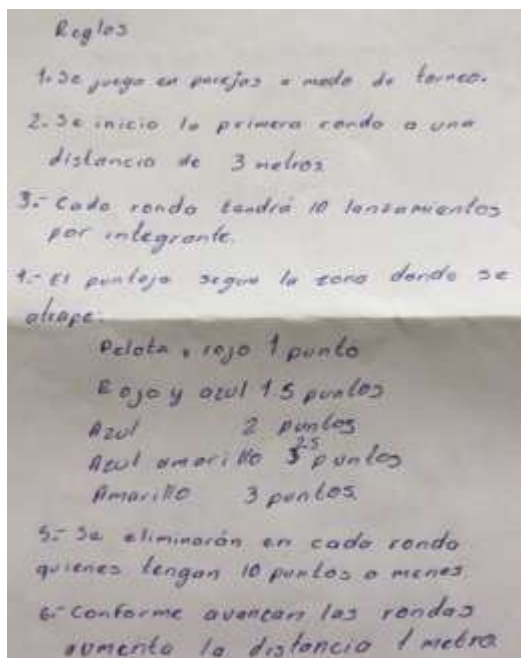 Reglas
1. Se juega en parejas a modo de torneo.
2. Se inicia la primera ronda a una
distancia de 3 metros
3.- Cada ronda tendrá 10 lanzamientos
por integrante.
4.- El puntaje segun la zona donde se
atrape:
Pelota y rojo 1 punto
Rojo y azul 1.5 puntos
Azul 2 puntos
Azul amarillo 2.5 puntos
Amarillo 3 puntos
5.- Se eliminarán en cada ronda
quienes tengan 10 puntos o menos
6.- Conforme avanzan las rondas
aumenta la distancia 1 metro